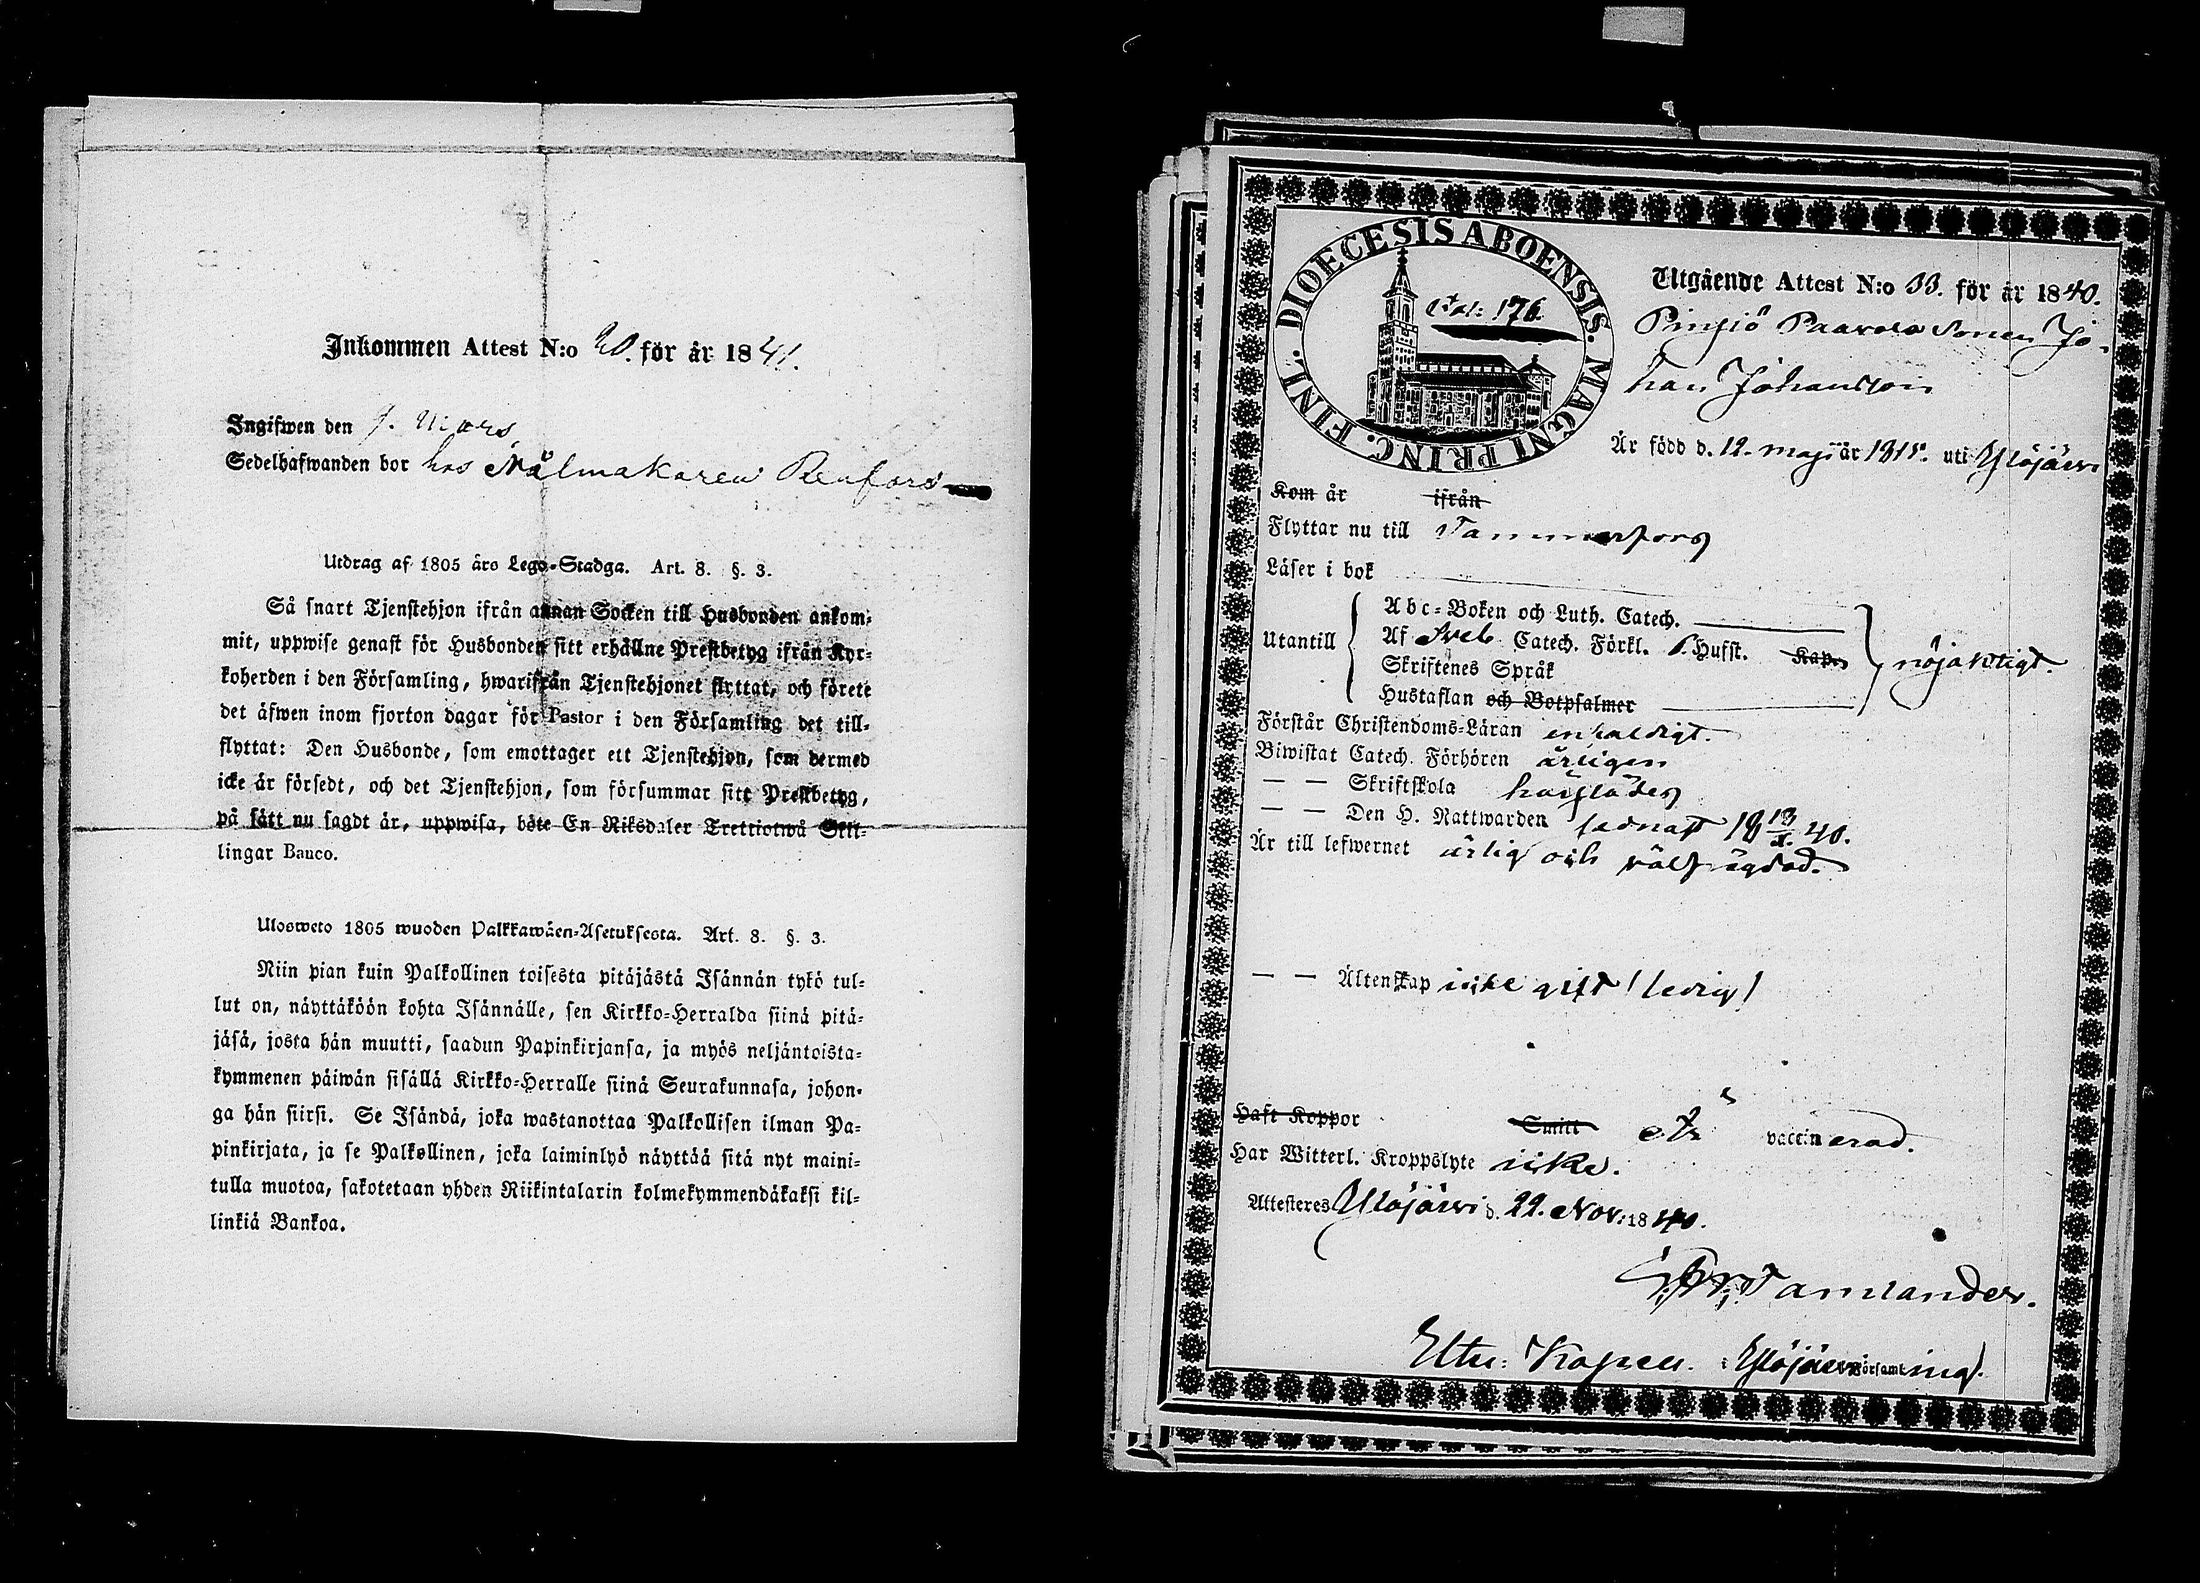 Inkommen Attest N:o 20. för år 1841.
Ingifwen den 7. Mars
Sedelhafwanden bor hos Nålmakaren Renfors
Utdrag af 1805 års Lego-Stadga. Art. 8. §. 3.
Så snart Tjenstehjon ifrån annan Socken till Husbonden ankom-
mit, uppwise genast för Husbonden sitt erhållne Prestbetyg ifrån Kyr-
koherden i den Församling, hwarifrån Tjenstehjonet flyttat, och förete
det äfwen inom fjorton dagar för Pastor i den Församling det till-
flyttat: Den Husbonde, som emottager ett Tjenstehjon, som dermed
icke är försedt, och det Tjenstehjon, som försummar sitt Prestbetyg,
på sätt nu sagdt är, uppwisa, böte En Riksdaler Trettiotwå Skil-
lingar Banco.
Ulosweto 1805 wuoden Palkkawäen-Asetuksesta. Art. 8. §. 3.
Niin pian kuin Palkollinen toisesta pitäjästä Isännän tykö tul-
lut on, näyttäköön kohta Isännälle, sen Kirkko-Herralda siinä pitä-
jäsä, josta hän muutti, saadun Papinkirjansa, ja myös neljäntoista-
kymmenen päiwän sisällä Kirkko-Herralle siinä Seurakunnasa, johon-
ga hän siirsi. Se Isändä, joka wastanottaa Palkollisen ilman Pa-
pinkirjata, ja se Palkollinen, joka laiminlyö näyttää sitä nyt maini-
tulla muotoa, sakotetaan yhden Riikintalarin kolmekymmendäkaksi kil-
linkiä Bankoa.
DIOECESIS ABOENSIS. MAGNI PRINC. FINL.
176.
Utgående Attest N:o 33. för år 1840.
Pinsiö Paavola Sonen Jo-
han Johansson
Är född d. 12. maji år 1815. uti Ylöjärvi
Kom år ifrån
Flyttar nu till Tammerfors
Läser i bok
Utantill
Abc-Boken och Luth. Catech.
Af Sveb. Catech. Förkl. Hufst. Kap.
Skriftenes Språk
Hustaflan och Botpsalmer
nöjaktigt.
Förstår Christendoms-Läran enfaldigt.
Biwistat Catech. Förhören årligen
— — Skriftskola
— — Den H. Nattwarden sednast 18 13/X. 40.
Är till lefwernet ärlig och välfrägdad.
— — Äktenskap icke gift / ledig /
Haft Koppor Smitt är vaccinerad.
Har Witterl. Kroppslyte icke.
Attesteres Ylöjärvi d. 22. Nov. 1840.
Tamlander.
Kapell. i Ylöjärvi Församling.